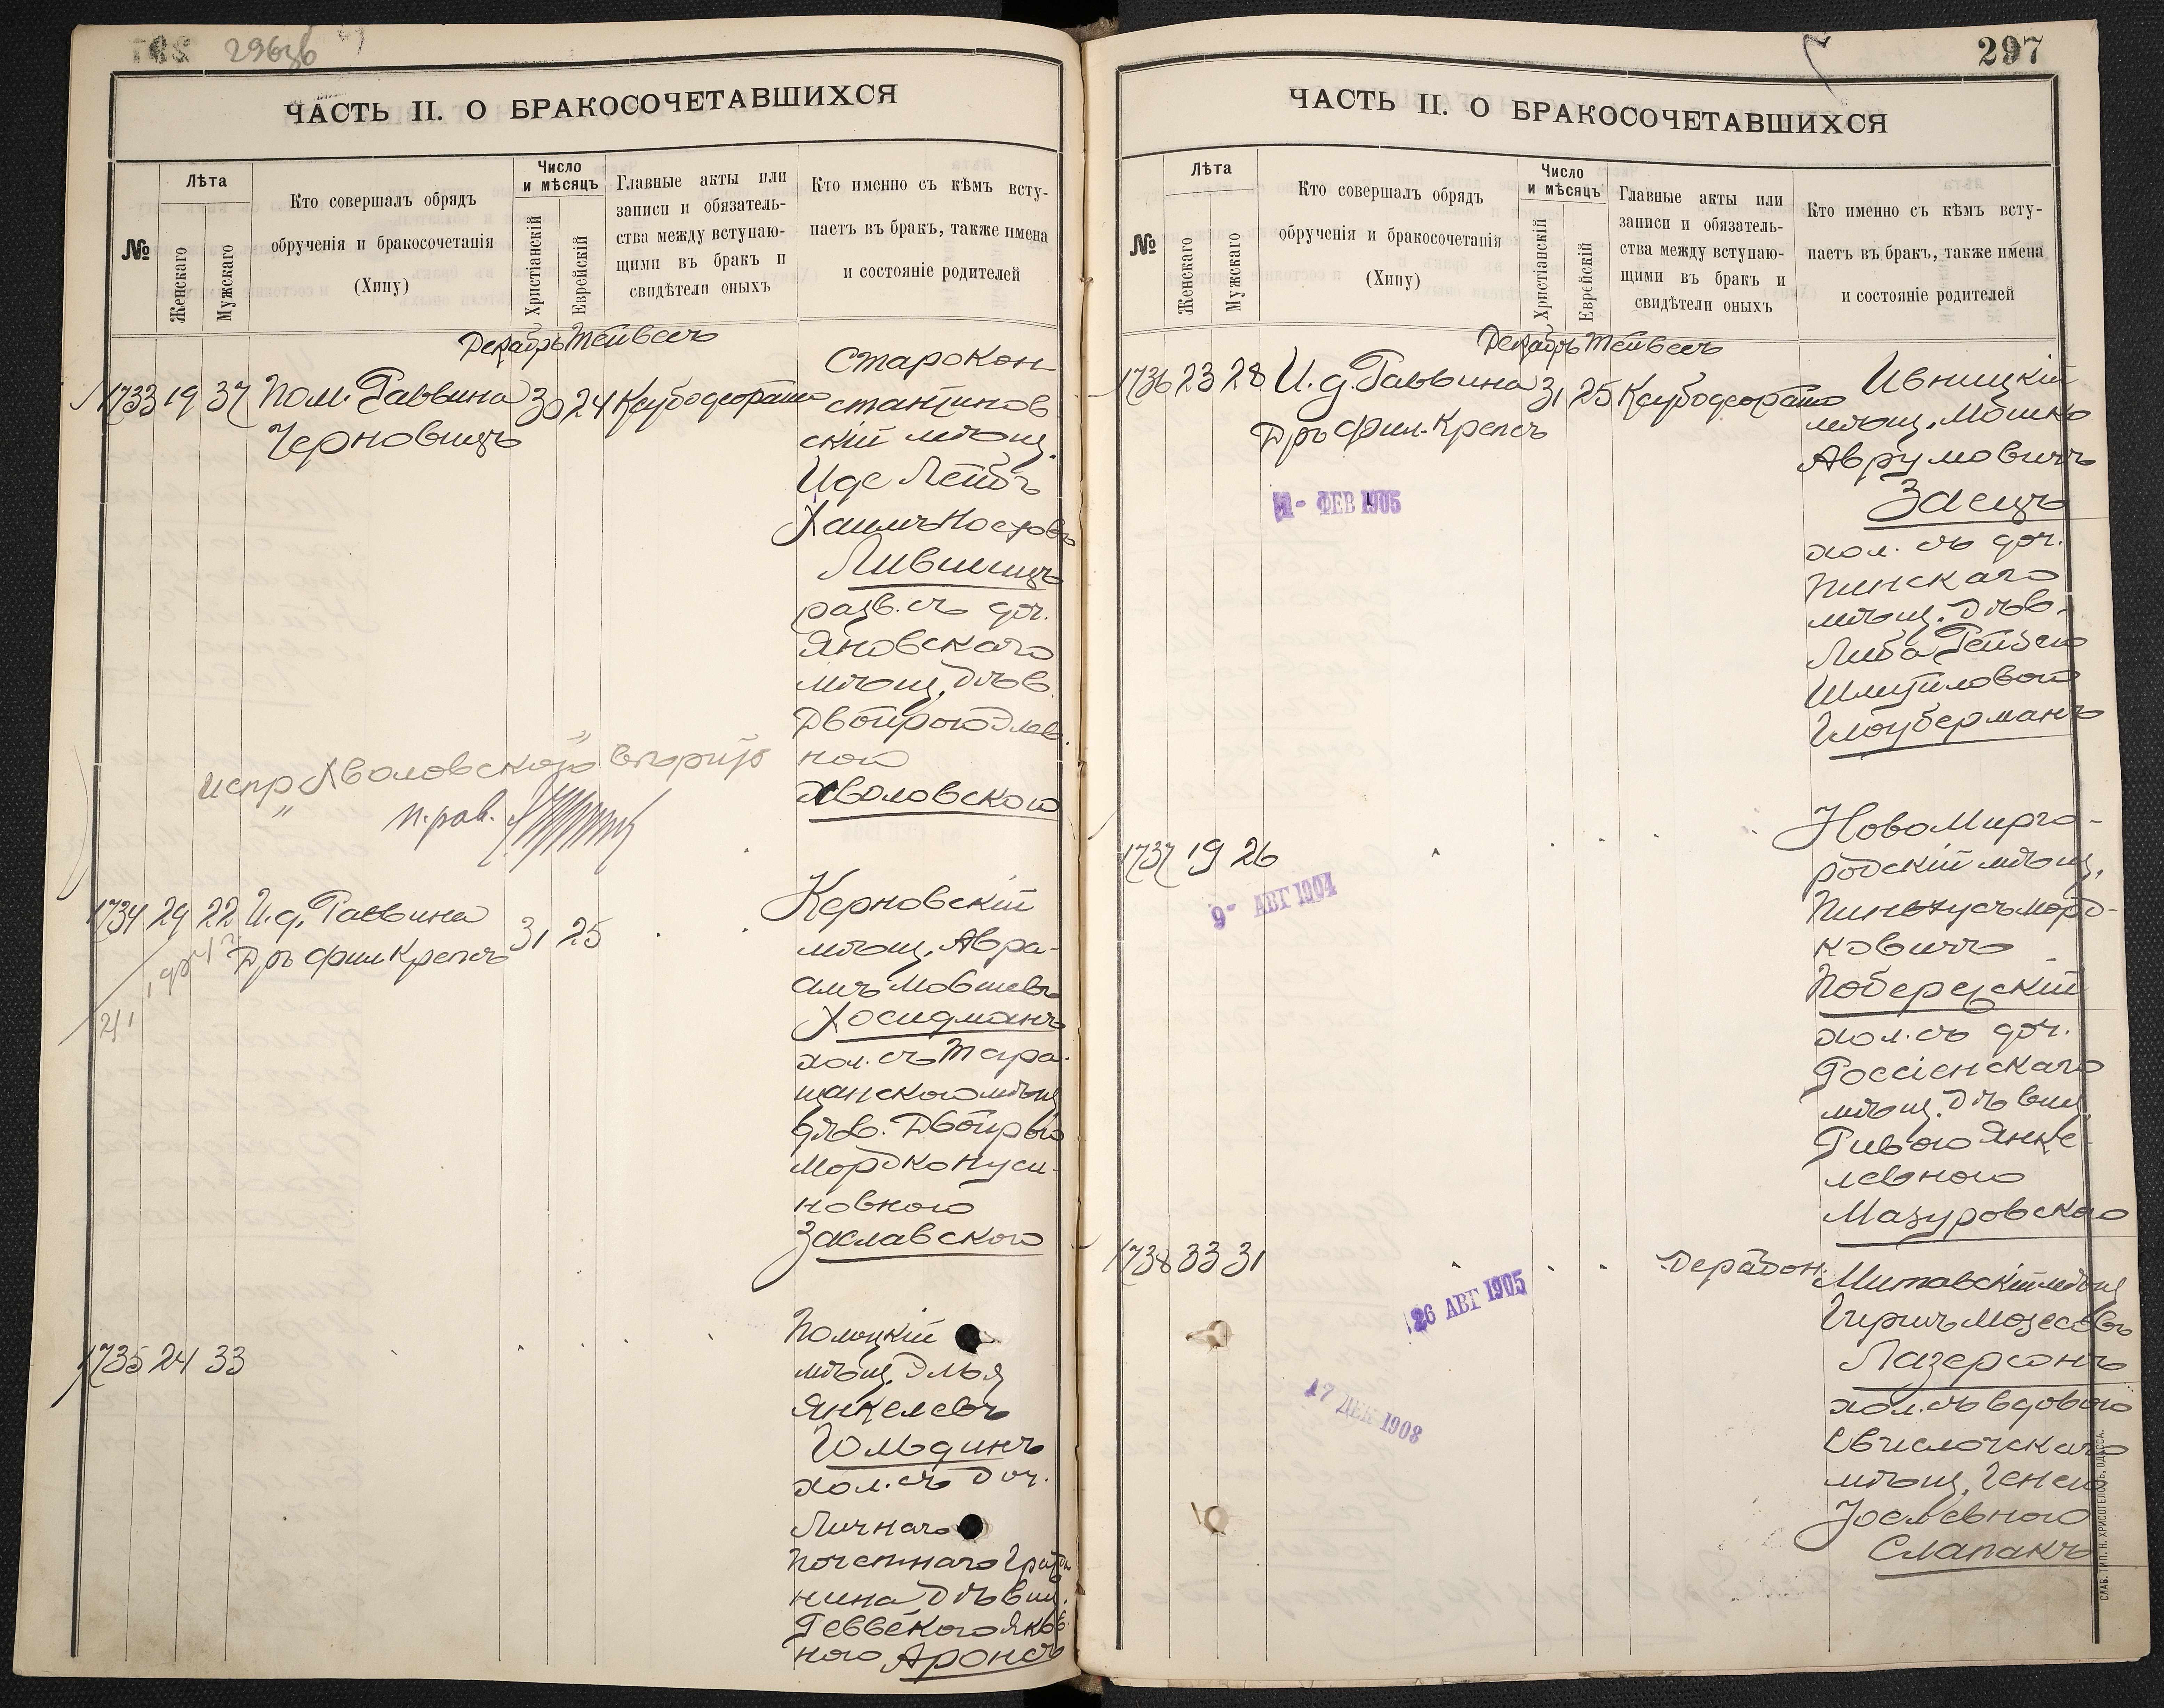 296об
ЧАСТЬ II. О БРАКОСОЧЕТАВШИХСЯ
№
Лѣта
Женскаго
Мужскаго
Кто совершалъ обрядъ
обрученія и бракосочетанія
(Хипу)
Число
и мѣсяцъ
Христіанскій
Еврейскій
Главные акты или
записи и обязатель-
ства между вступаю-
щими въ бракъ и
свидѣтели оныхъ
Кто именно съ кѣмъ всту-
паетъ въ бракъ, также имена
и состояніе родителей
Декабрь Тейвесъ
1733 19 37 Пом. Раввина 30 24
Черновицъ
Старокон
стантинов
скій мѣщ.
Иде Лейбъ
Лившицъ
разв. съ доч.
Яновскаго
мѣщ. дѣв.
Двойрою Элев.
ной
Аволовскою
испр Аволовскою вѣрить
п. рав.
1734 29 22 И. д. Раввина 31 25
Дръ фил Крепсъ
Керновскій
мѣщ. Авра-
амъ Мовшевъ
Хосидманъ
хол. съ Тара-
щанскою мѣщ
дѣв. Двойрою
Мордко Нуси-
новною
Заславскою
1735 24 33
Полоцкій
мѣщ. Элья
Янкелевъ
Гольдинъ
хол. съ доч.
Личнаго
Почетнаго Граж
нина дѣвиц.
Реввекою Яков
ною Аронсъ
297
ЧАСТЬ II. О БРАКОСОЧЕТАВШИХСЯ
№
Лѣта
Женскаго
Мужскаго
Кто совершалъ обрядъ
обрученія и бракосочетанія
(Хипу)
Число
и мѣсяцъ
Христіанскій
Еврейскій
Главные акты или
записи и обязатель-
ства между вступаю-
щими въ бракъ и
свидѣтели оныхъ
Кто именно съ кѣмъ всту-
паетъ въ бракъ, также имена
и состояніе родителей
Декабрь Тейвесъ
1736 23 28 И. д. Раввина 31 25
Дръ фил. Крепсъ
1- ФЕВ 1905
Ивницкій
мѣщ. Мошко
Аврумовичъ
Заецъ
хол. съ доч.
Пинскаго
мѣщ. дѣв.
Либа Рейзею
Шмуйловою
Глоуберманъ
1737 19 26
9- АВГ 1904
Новомирго-
родскій мѣщ.
Пинхусъ Морд-
ковичъ
Поберезскій
хол. съ доч.
Россіенскаго
мѣщ. Дѣвиц
Ривою Янке-
левною
Мазуровскою
1738 33 31
26 АВГ 1905
17 ДЕК 1908
Дерабон.
Митавскій мѣщ
Гиршъ Мозесовъ
Лазерсонъ
хол. съ вдовою
Свислочскаго
мѣщ. Генею
Іоселевною
Слапакъ
СЛАВ. ТИП. Н. ХРИСОГЕЛОСЪ, ОДЕССА.